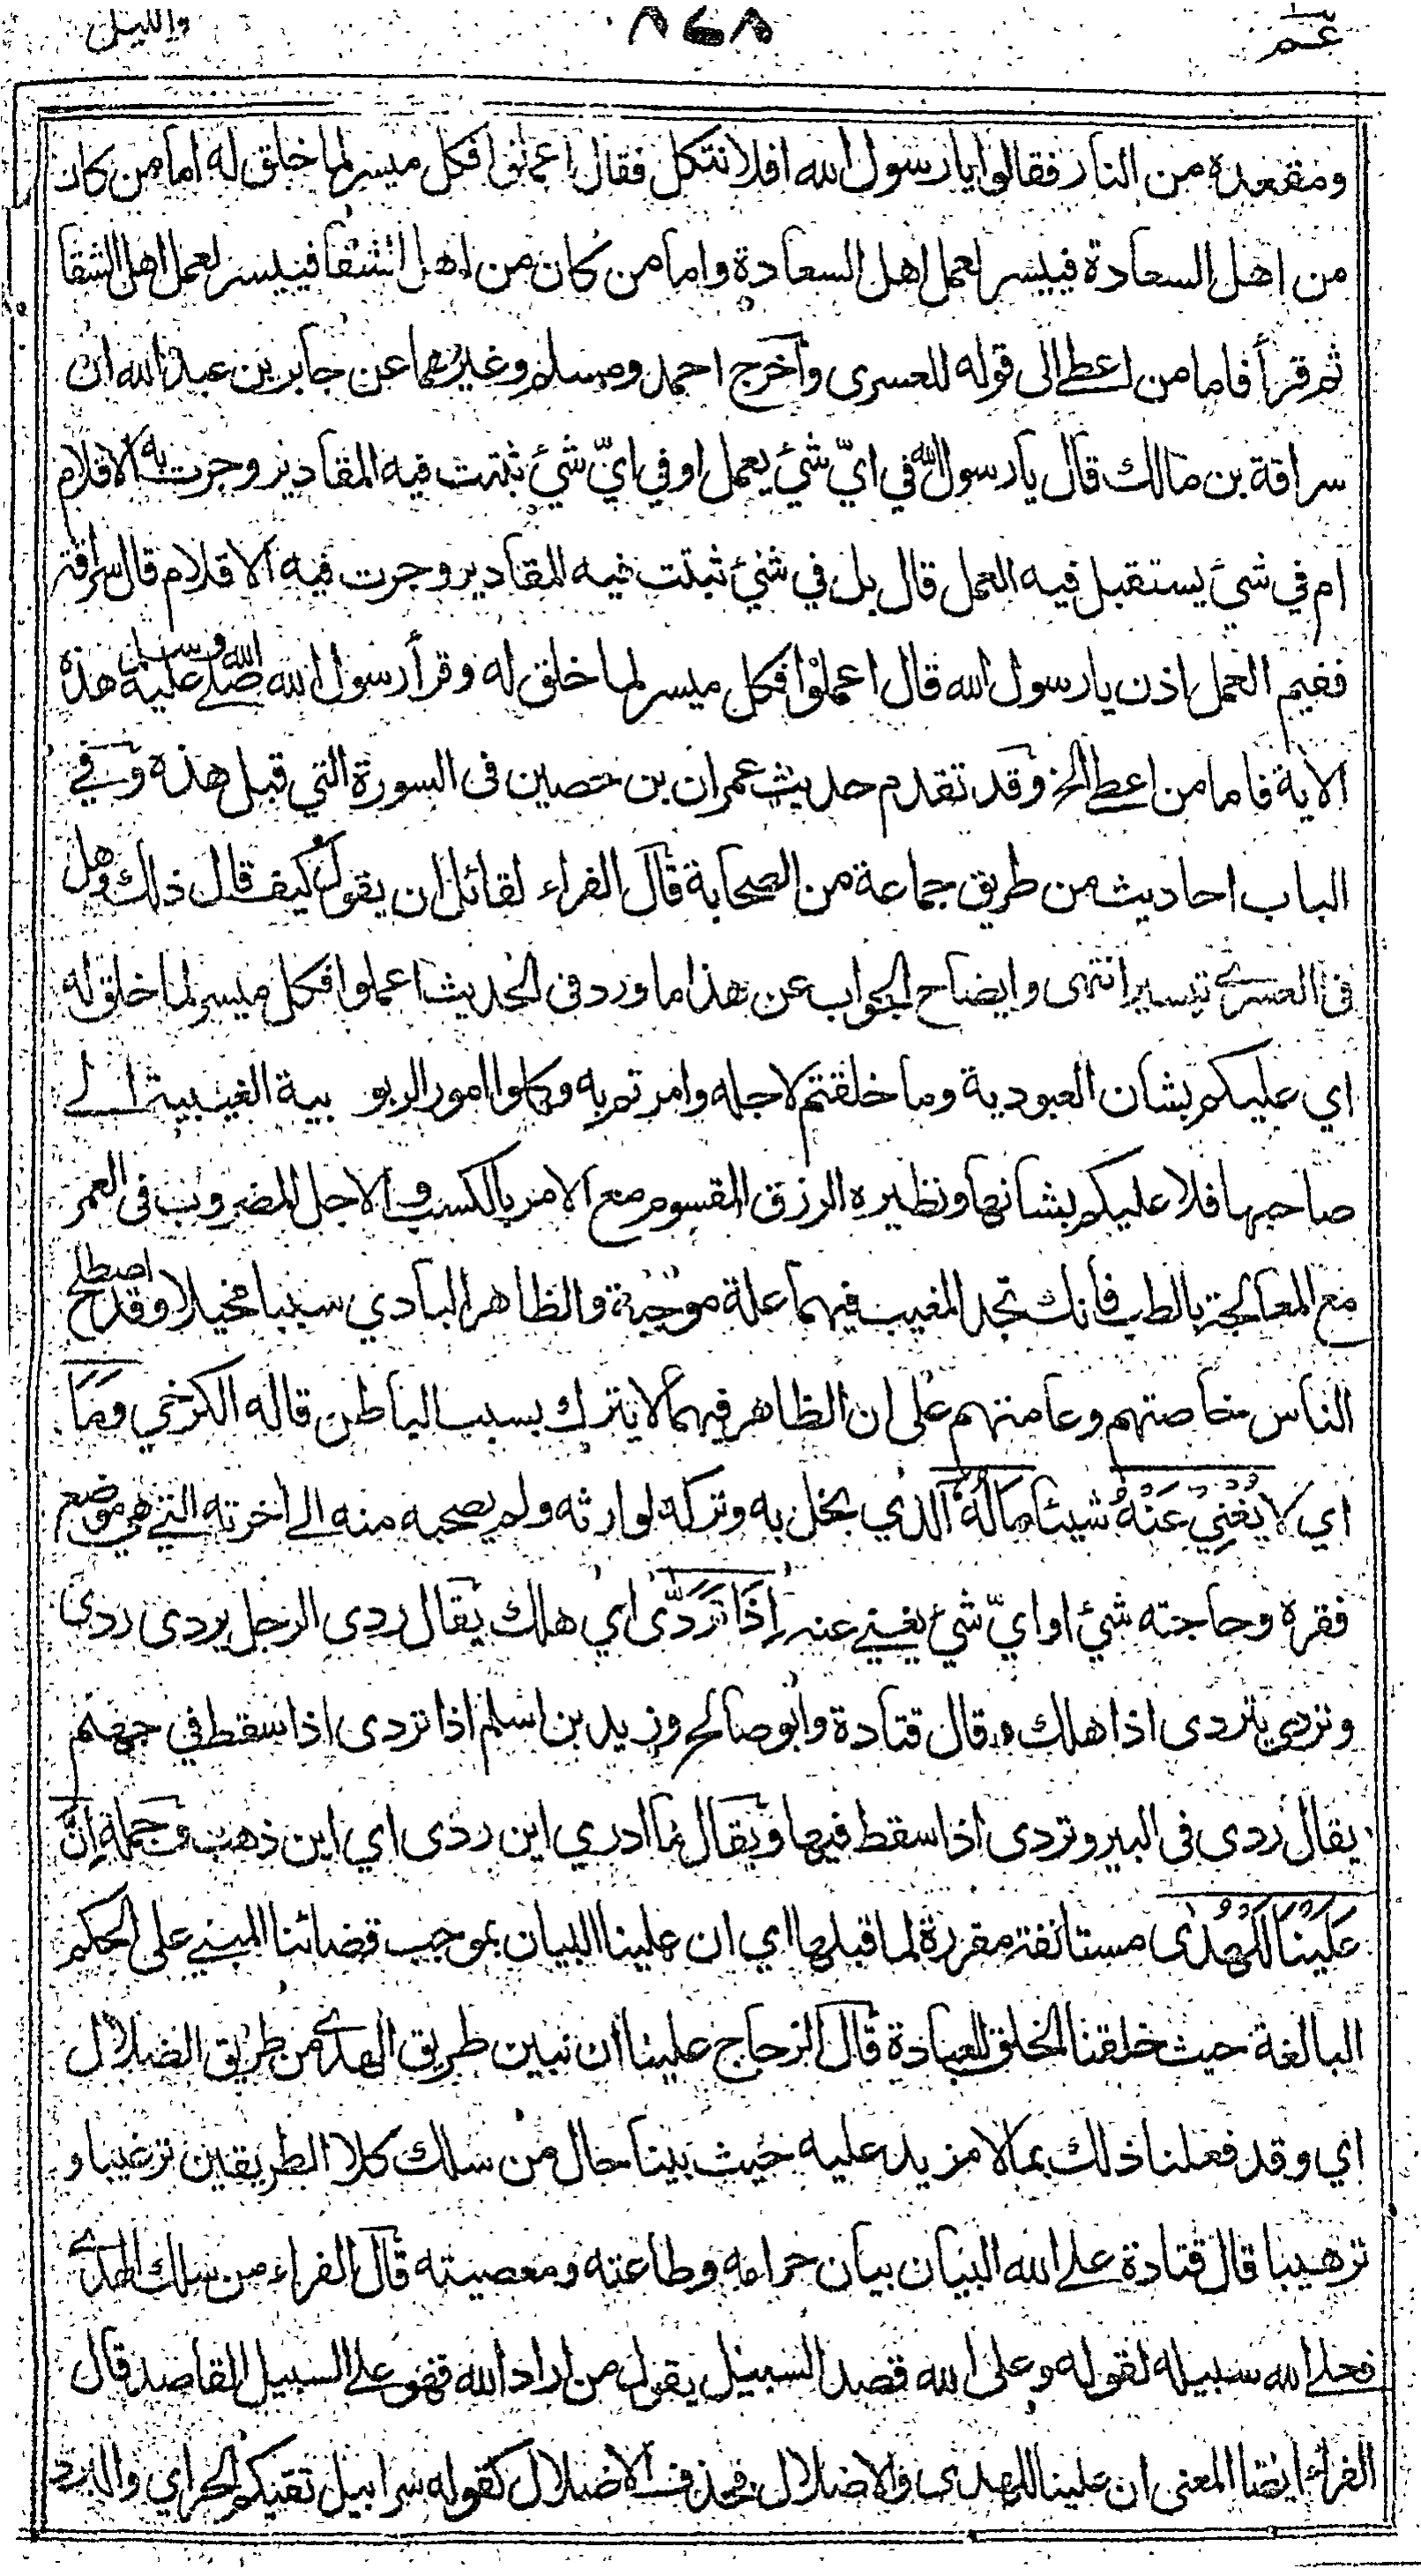 عـم ٨٤٨ والليل
ومقعده من النار فقالوا يا رسول الله افلا نتكل فقال اعملوا فكل ميسر لما خلق له اما من كان
من اهل السعادة فييسر لعمل اهل السعادة واما من كان من اهل الشقا فييسر لعمل اهل الشقا
ثم قرأ فاما من اعطى الى قوله للعسرى وأخرج احمد ومسلم وغيرهما عن جابر بن عبد الله ان
سراقة بن مالك قال يا رسول الله في ايّ شئ يعمل او في ايّ شئ ثبتت فيه المقادير وجرت به الاقلام
ام في شئ يستقبل فيه العمل قال بل في شئ ثبتت فيه المقادير وجرت فيه الاقلام قال سراقة
ففيم العمل اذن يا رسول الله قال اعملوا فكل ميسر لما خلق له وقرأ رسول الله صلى الله عليه وسلم هذه
الاية فاما من اعطى الخ وقد تقدم حديث عمران بن حصين فى السورة التي قبل هذه وفي
الباب احاديث من طريق جماعة من الصحابة قال الفراء لقائل ان يقول كيف قال ذلك وهل
فى العسرى تيسير انتهى وايضاح الجواب عن هذا ما ورد فى الحديث اعملوا فكل ميسر لما خلق له
اي عليكم بشان العبودية وما خلقتم لاجله وامرتم به وكلوا امور الربو بية الغيبية الى
صاحبها فلا عليكم بشانها ونظيره الرزق المقسوم مع الامر بالكسب والاجل المضروب فى العمر
مع المعالجة بالطب فانك تجد المغيب فيهما علة موجبة والظاهر البادي سببا مخيلا وقد اصطلح
الناس خاصتهم وعامتهم على ان الظاهر فيهما لا يترك بسبب الباطن قاله الكرخي وَمَا
اي لا يُغْنِي عَنْهُ شيئا مَالُهُ الذي بخل به وتركه لوارثه ولم يصحبه منه الى أخرته التي هي موضع
فقره وحاجته شئ او ايّ شئ يغني عنه إِذَا تَرَدَّى اي هلك يقال ردي الرجل يردى ردى
وتردى يتردى اذا هلك وقال قتادة وابو صالح وزيد بن اسلم اذا تردى اذا سقط في جهنم
يقال ردى فى البير وتردى اذا سقط فيها ويقال ما ادري اين ردى اي اين ذهب وجملة إِنَّ
عَلَيْنَا لَلْهُدَى مستانفة مقررة لما قبلها اي ان علينا البيان بموجب قضائنا المبني على الحكم
البالغة حيث خلقنا الخلق للعبادة قال الزجاج علينا ان نبين طريق الهدى من طريق الضلال
اي وقد فعلنا ذلك بما لا مزيد عليه حيث بينا حال من سلك كلا الطريقين ترغيبا و
ترهيبا قال قتادة على الله البيان بيان حرامه وطاعته ومعصيته قال الفراء من سلك الهدى
فعلى الله سبيله لقوله وعلى الله قصد السبيل يقول من اراد الله فهو على السبيل القاصد قال
الفراء ايضا المعنى ان علينا للهدى والاضلال فحذف الاضلال كقوله سرابيل تقيكم الحر اي والبرد